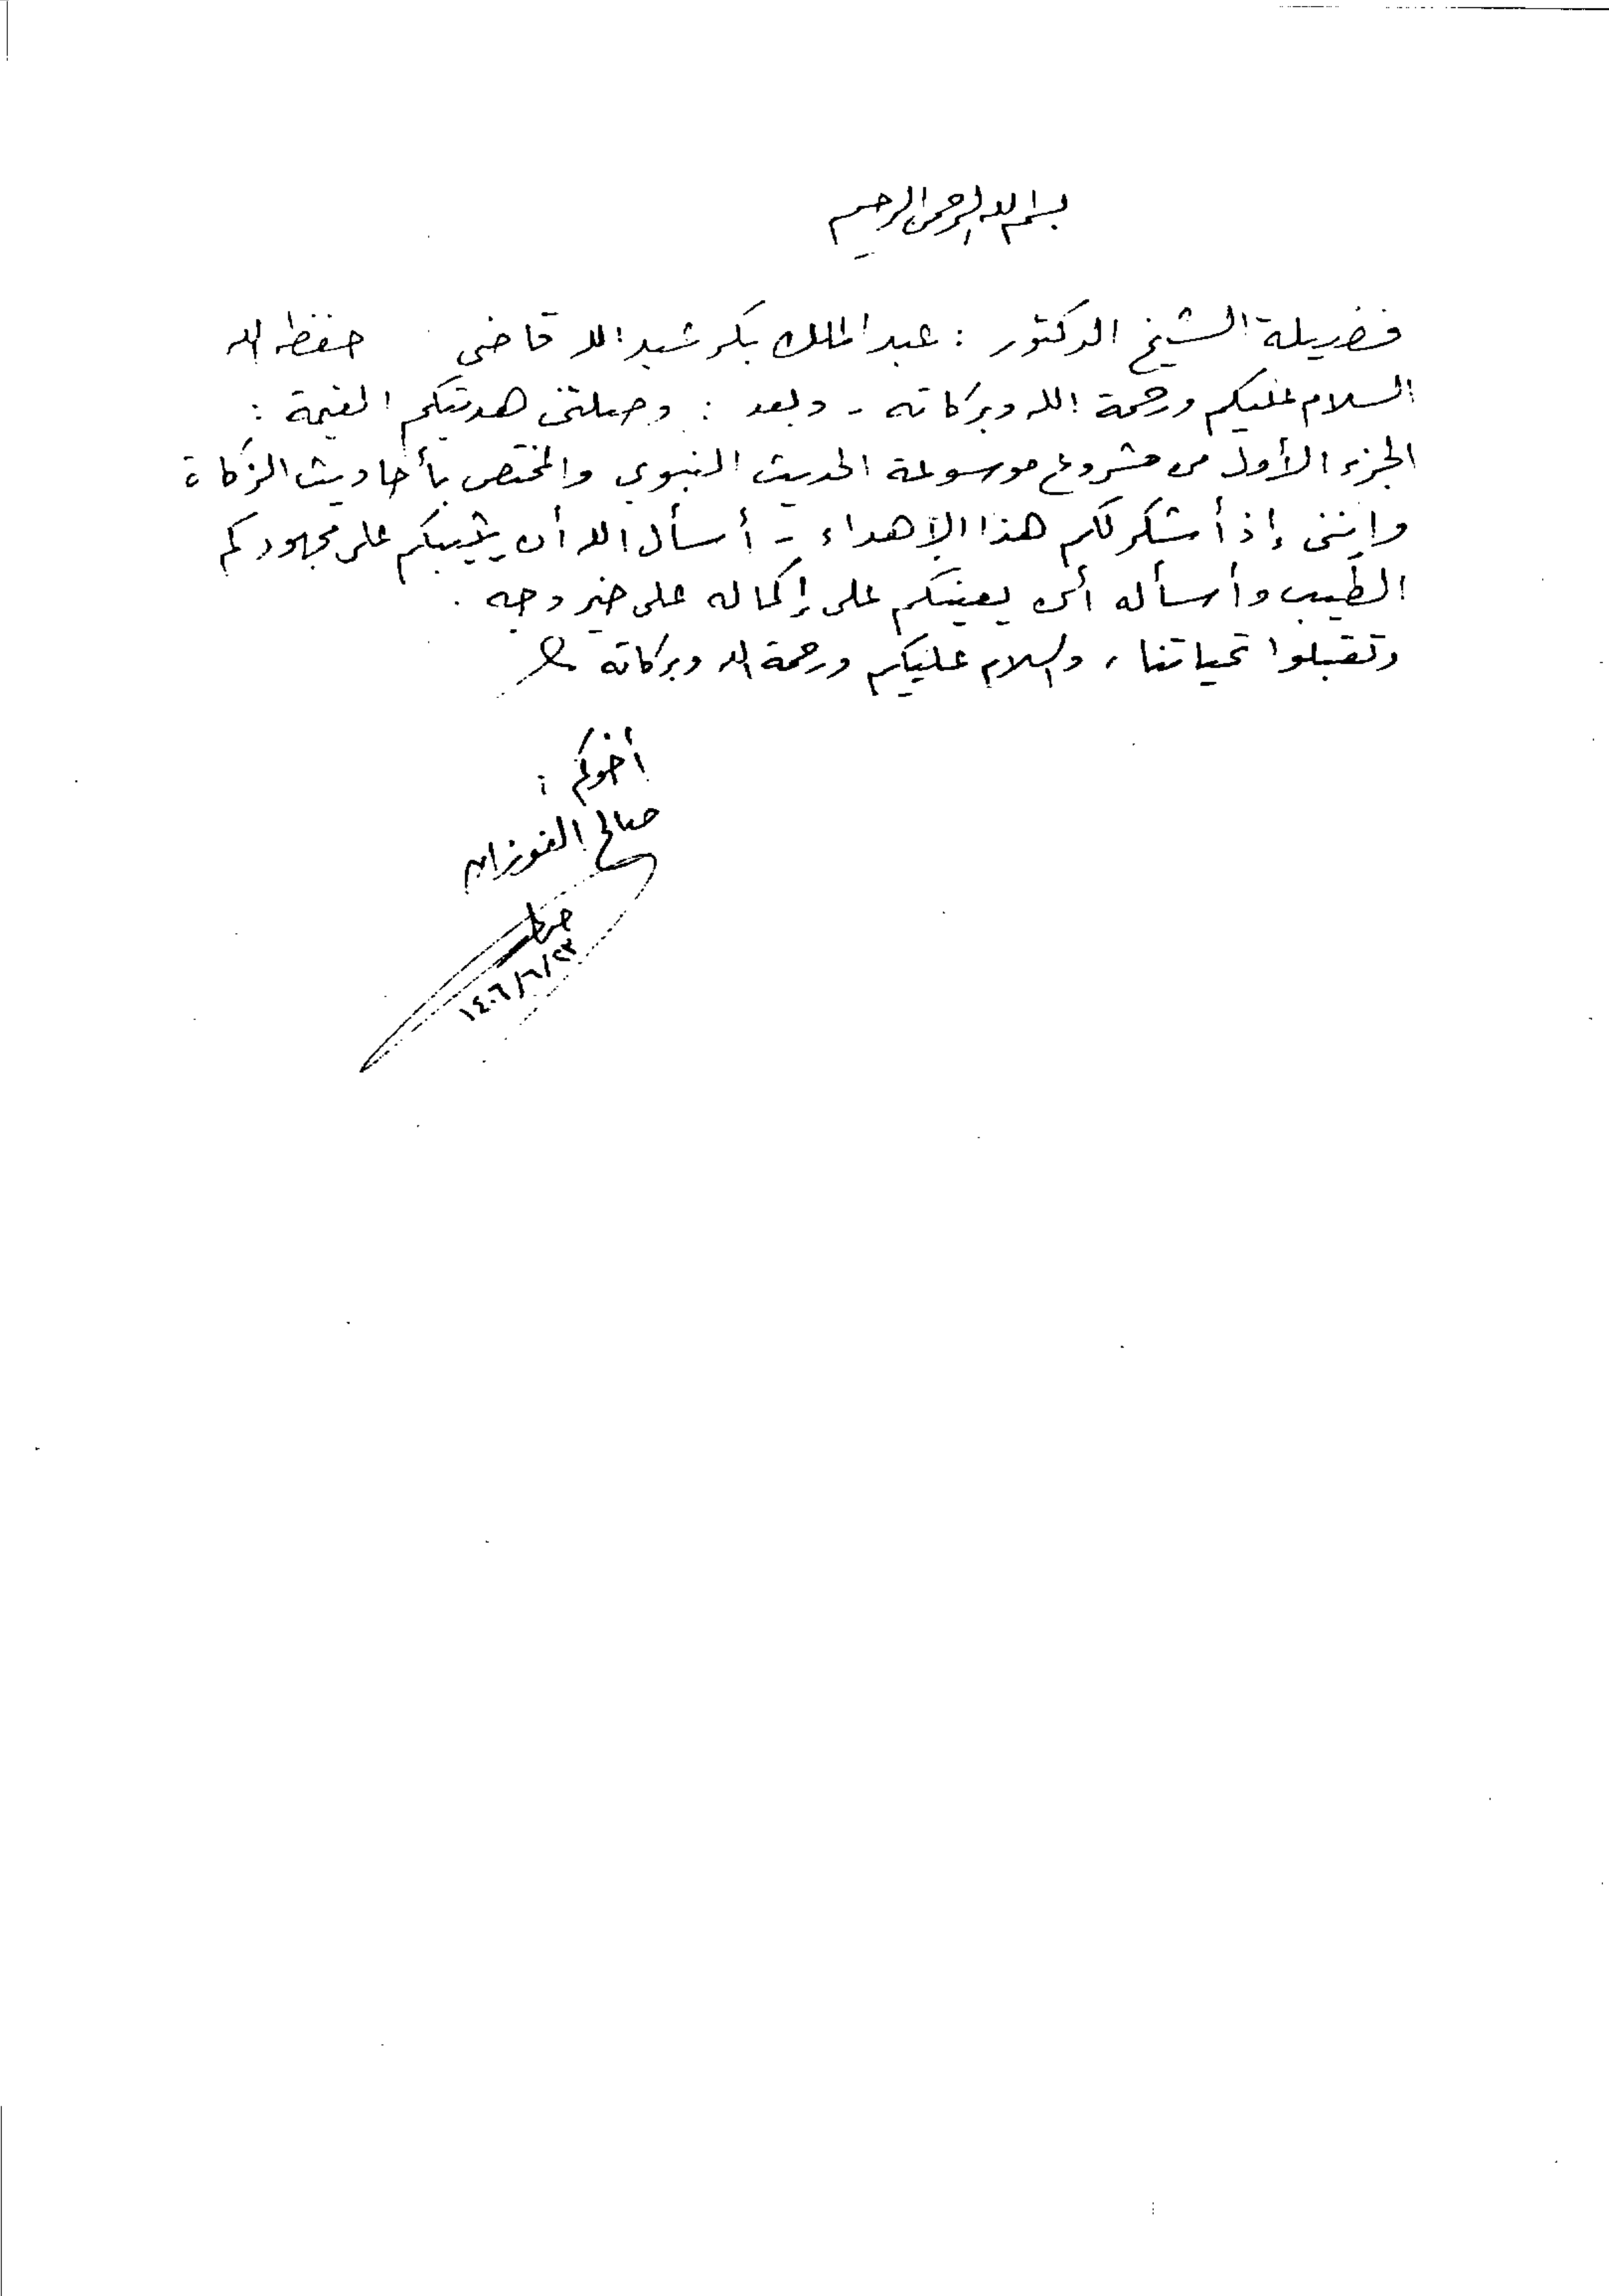 بسم الله الرحمن الرحيم
فضيلة الشيخ الدكتور : عبد الملك بكر عبد الله قاضي حفظه الله
السلام عليكم ورحمة الله وبركاته - وبعد : وصلتني هديتكم القيمة :
الجزء الأول من مشروع موسوعة الحديث النبوي والمختص بأحاديث الزكاة
وإنني إذ أشكر لكم هذا الإهداء - أسأل الله أن يثيبكم على مجهودكم
الطيب وأسأله أن يعينكم على إكماله على خير وجه .
وتقبلوا تحياتنا ، والسلام عليكم ورحمة الله وبركاته
أخوكم :
صالح الفوزان
١٤٠٦/٦/٢٣